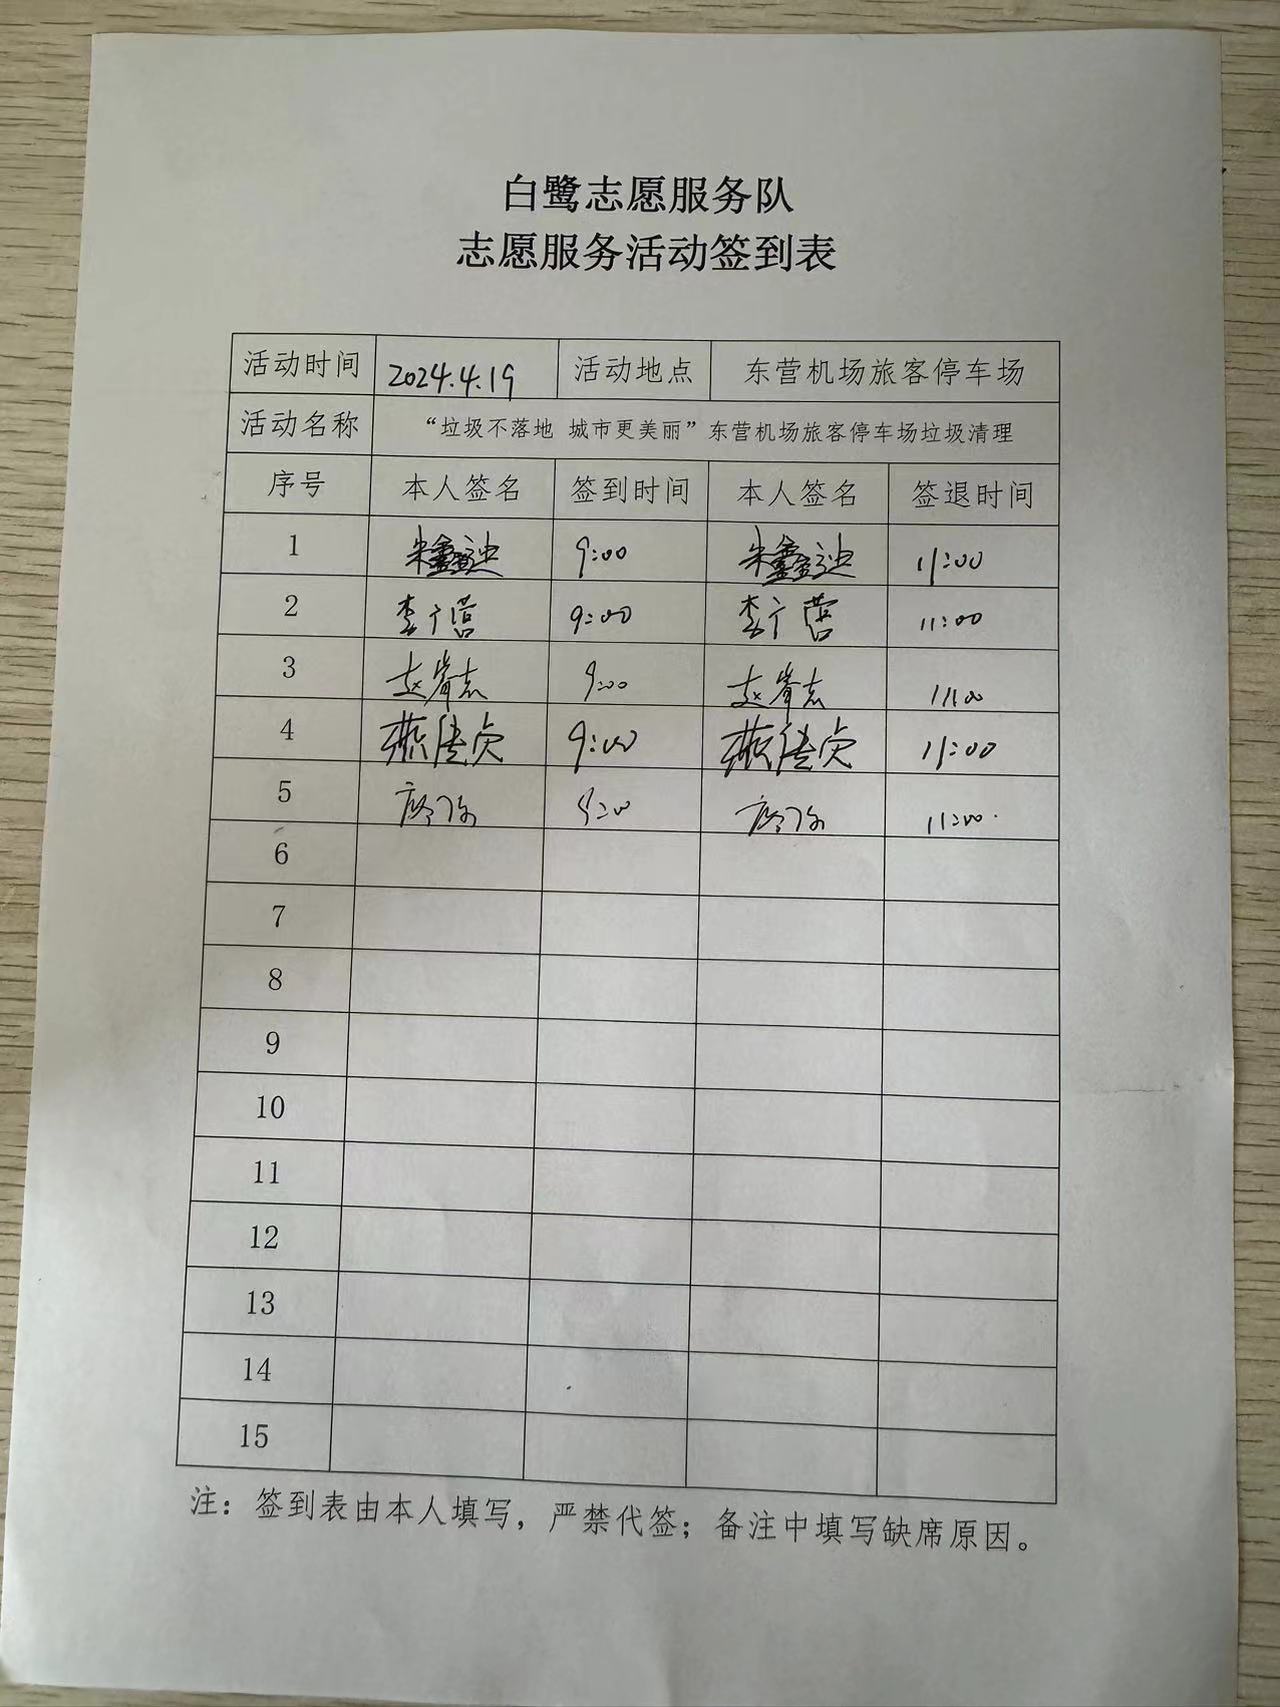 白鹭志愿服务队
志愿服务活动签到表
活动时间 2024.4.19 活动地点 东营机场旅客停车场
活动名称 “垃圾不落地 城市更美丽”东营机场旅客停车场垃圾清理
序号 本人签名 签到时间 本人签名 签退时间
1 朱鑫迪 9:00 朱鑫迪 11:00
2 李广营 9:00 李广营 11:00
3 赵 志 9:00 赵 志 11:00
4 燕 贞 9:00 燕 贞 11:00
5 9:00 11:00
6
7
8
9
10
11
12
13
14
15
注：签到表由本人填写，严禁代签；备注中填写缺席原因。